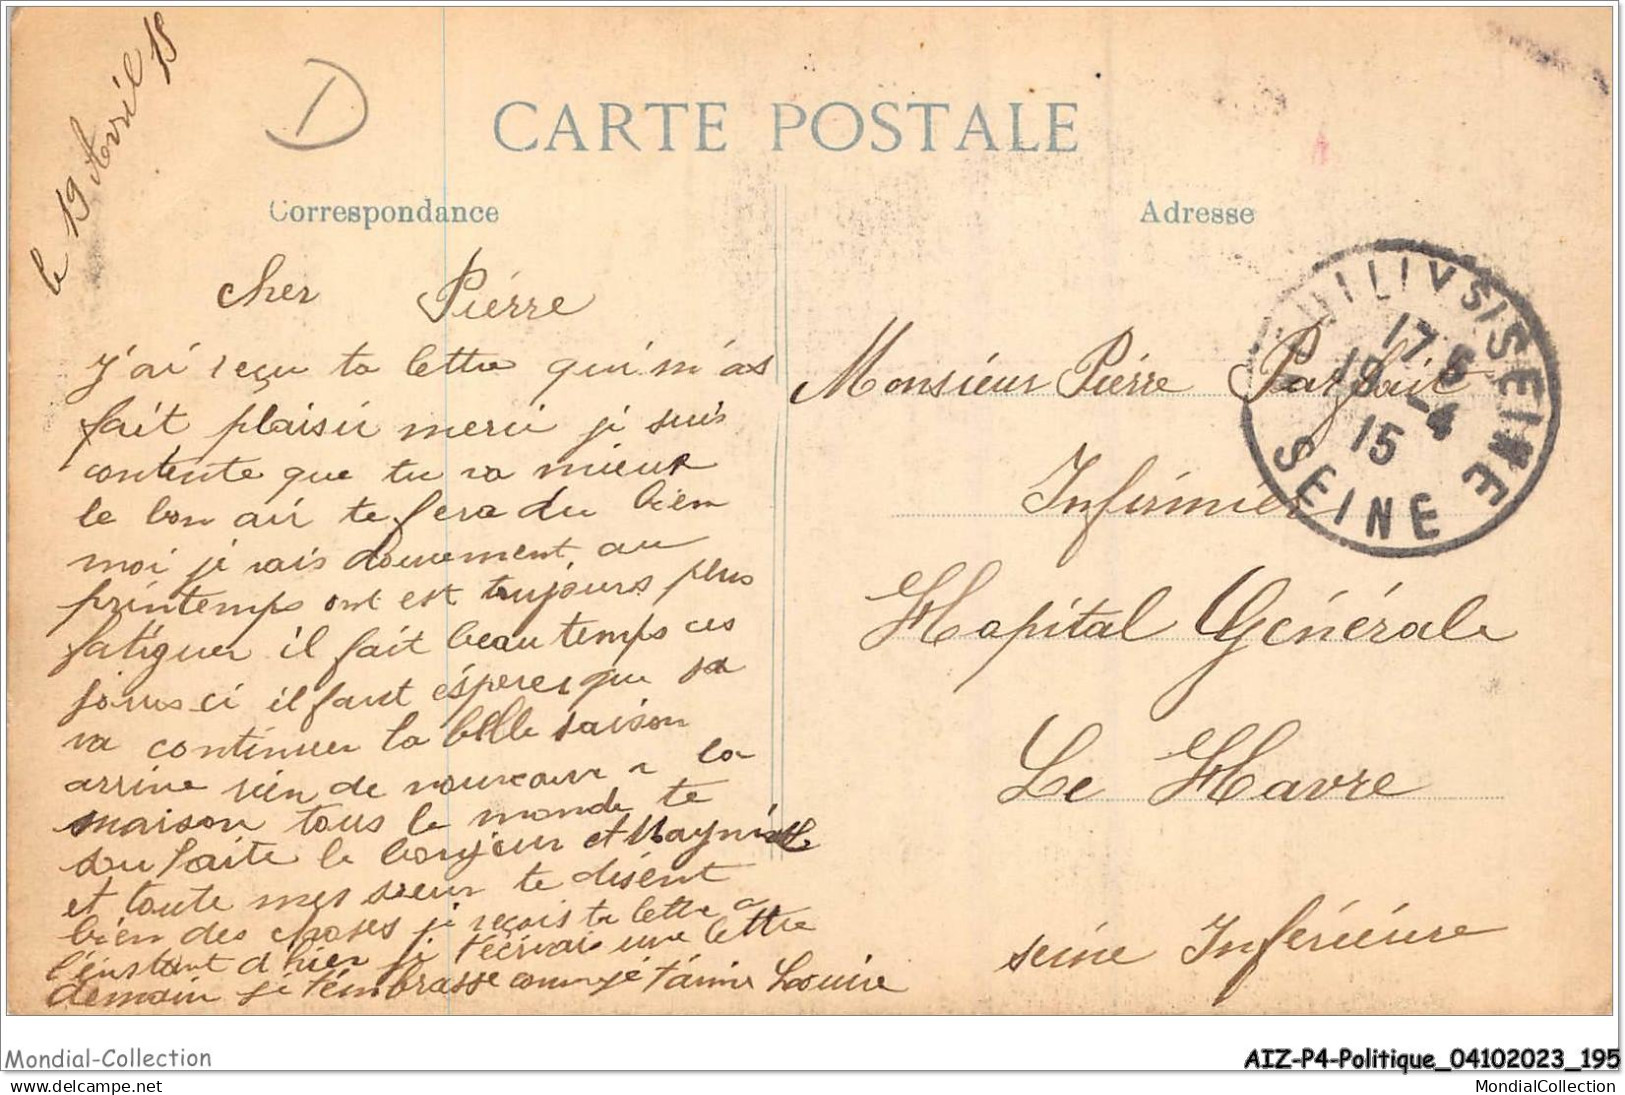 le 19 Avril 15
D
CARTE POSTALE
Correspondance
Adresse
cher Pierre
J'ai reçu ta lettre qui m'as
fait plaisir merci je suis
contente que tu va mieux
le bon air te fera du bien
moi je vais doucement au
printemps ont est toujours plus
fatiguer il fait beau temps ces
jours ci il faut ésperer que sa
va continuer la belle saison
arrive rien de nouveau a la
maison tous le monde te
souhaite le bonjour et
et toute mes sœur te disent
bien des choses je reçois ta lettre a
l'instant d hier je t'écrirai une lettre
demain je t'embrasse comme je t'aime Louise
Monsieur Pierre Parfait
Infirmier
Hopital Générale
Le Havre
seine Inférieure
S/SEINE
17
19 -4
15
SEINE
Mondial-Collection
delcampe.net
AIZ-P4-Politique_04102023_195
MondialCollection